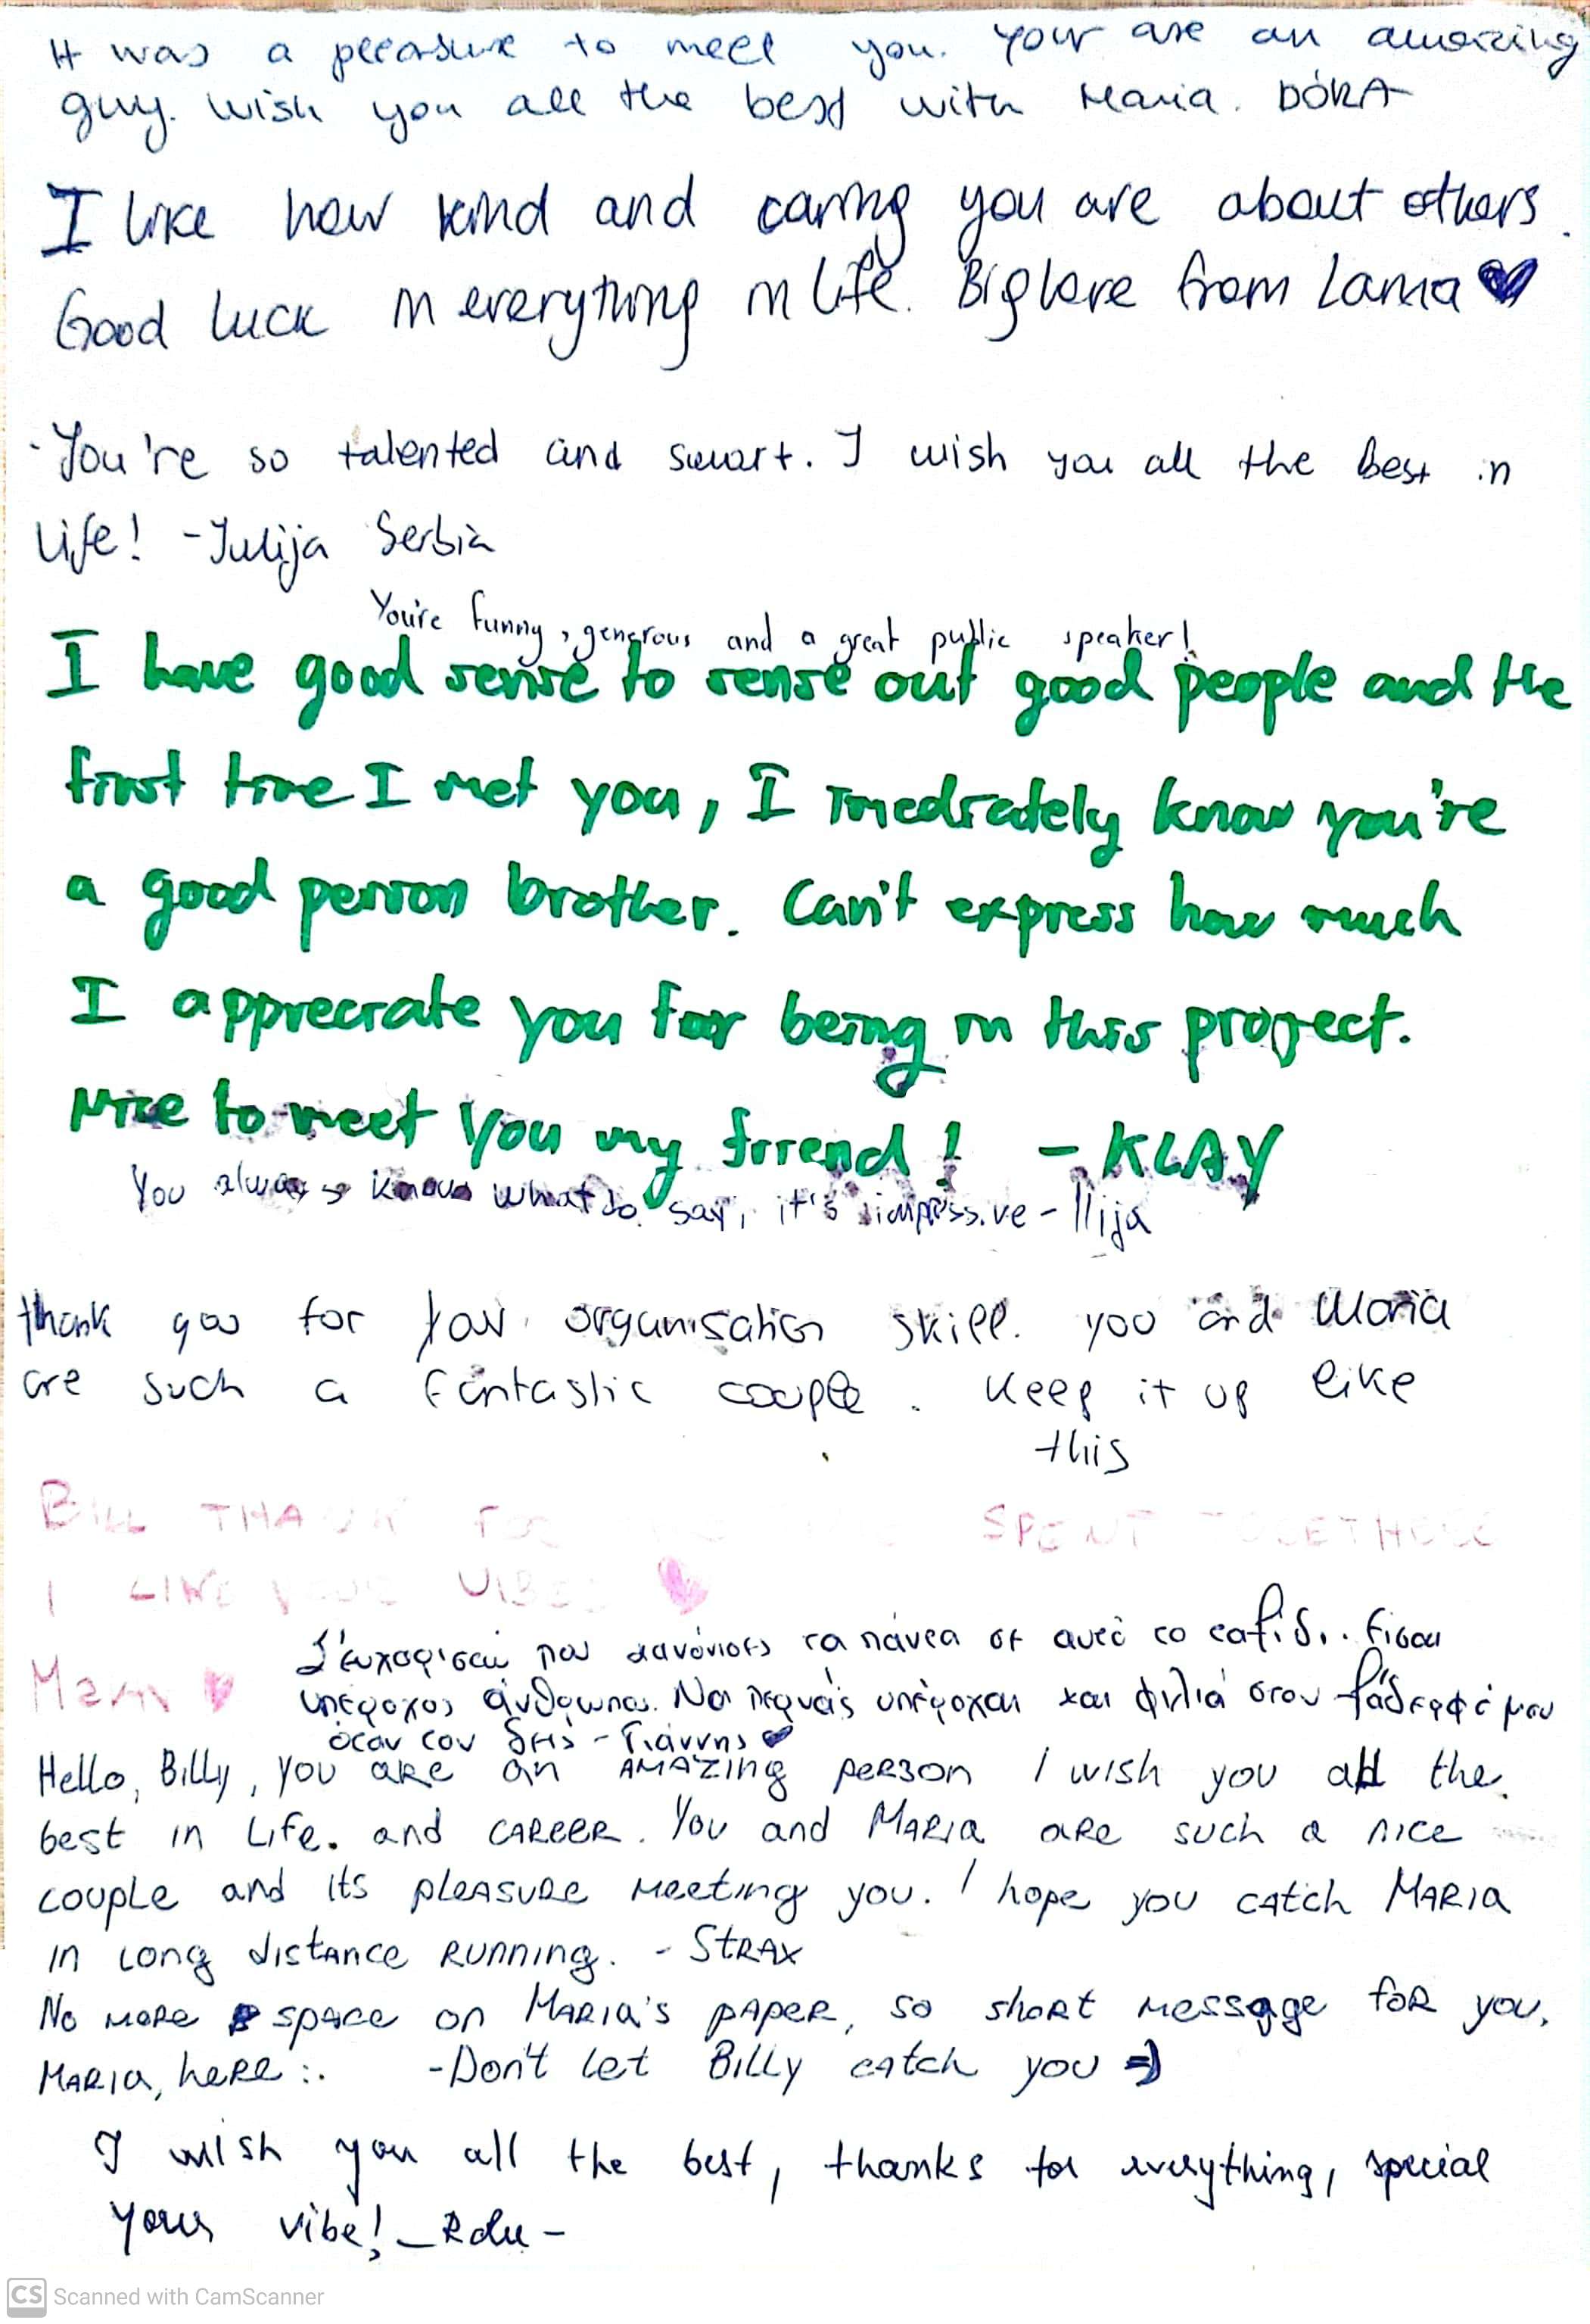 It was a pleasure to meet you. Your are an amazing
guy. Wish you all the best with Maria. DÓRA
I like how kind and caring you are about others.
Good luck in everything in life. Big love from Lama
- You're so talented and smart. I wish you all the best in
life! - Julija Serbia
You're funny, generous and a great public speaker!
I have good sense to sense out good people and the
first time I met you, I imediately know you're
a good person brother. Can't express how much
I appreciate you for being in this project.
Nice to meet you my friend! - KLAY
You always know what to say, it's impressive - Ilija
thank you for your organisation skill. you and Maria
are such a fantastic couple. Keep it up like
this
BILL THANK FOR SPENT TOGETHER
I LIKE YOUR VIBES
Σ'ευχαριστώ που κανόνισες τα πάντα σε αυτό το ταξίδι. Είσαι
υπέροχος άνθρωπος. Να περνάς υπέροχα και φιλιά στον αδερφό μου
όταν τον δεις - Γιάννης
Hello, Billy, you are an AMAZING person I wish you all the
best in Life. and CAREER. You and MARIA are such a nice
couple and its pleasure meeting you. I hope you catch MARIA
in long distance running. - STRAX
No more space on MARIA's paper, so short message for you,
MARIA, here :. - Don't let Billy catch you =)
I wish you all the best, thanks for everything, special
your vibe! -
CS Scanned with CamScanner